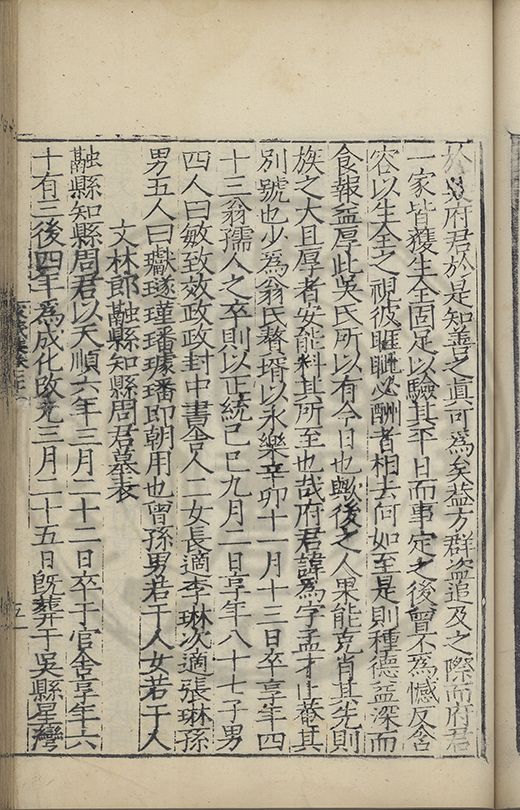 於府君於是知善之真可為矣葢方群盜追及之際而府君
一家皆獲生全固足以驗其平日而事定之後曾不為憾反含
容以生全之視彼睚眦必酬者相去何如至是則種德益深而
食報益厚此吳氏所以有今日也歟後之人果能克肖其先則
族之大且厚者安能料其所至也哉府君諱為字孟才止菴其
別號也少為翁氏贅壻以永樂辛卯十一月十三日卒享年四
十三翁孺人之卒則以正統己巳九月二日享年八十七子男
四人曰敏致效政政封中書舍人二女長適李琳次適張琳孫
男五人曰瓛瑑瑾璠璩璠即朝用也曾孫男若干人女若干人
文林郎融縣知縣周君墓表
融縣知縣周君以天順六年三月二十二日卒于官舍享年六
十有三後四年為成化改元三月二十五日既葬于吳縣星灣